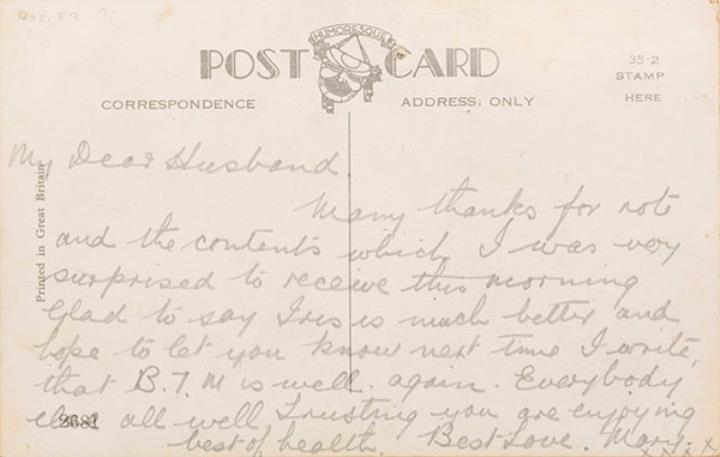 Dec. 87
HUMORESQUE
POST CARD
35-2
STAMP
HERE
CORRESPONDENCE
ADDRESS; ONLY
Printed in Great Britain
My Dear Husband.
Many thanks for note
and the contents which I was very
surprised to receive this morning
Glad to say Iris is much better and
hope to let you know next time I write,
that B.T.M is well again. Everybody
else all well Trusting you are enjoying
2681
best of health. Best Love. Mary.
x x x x